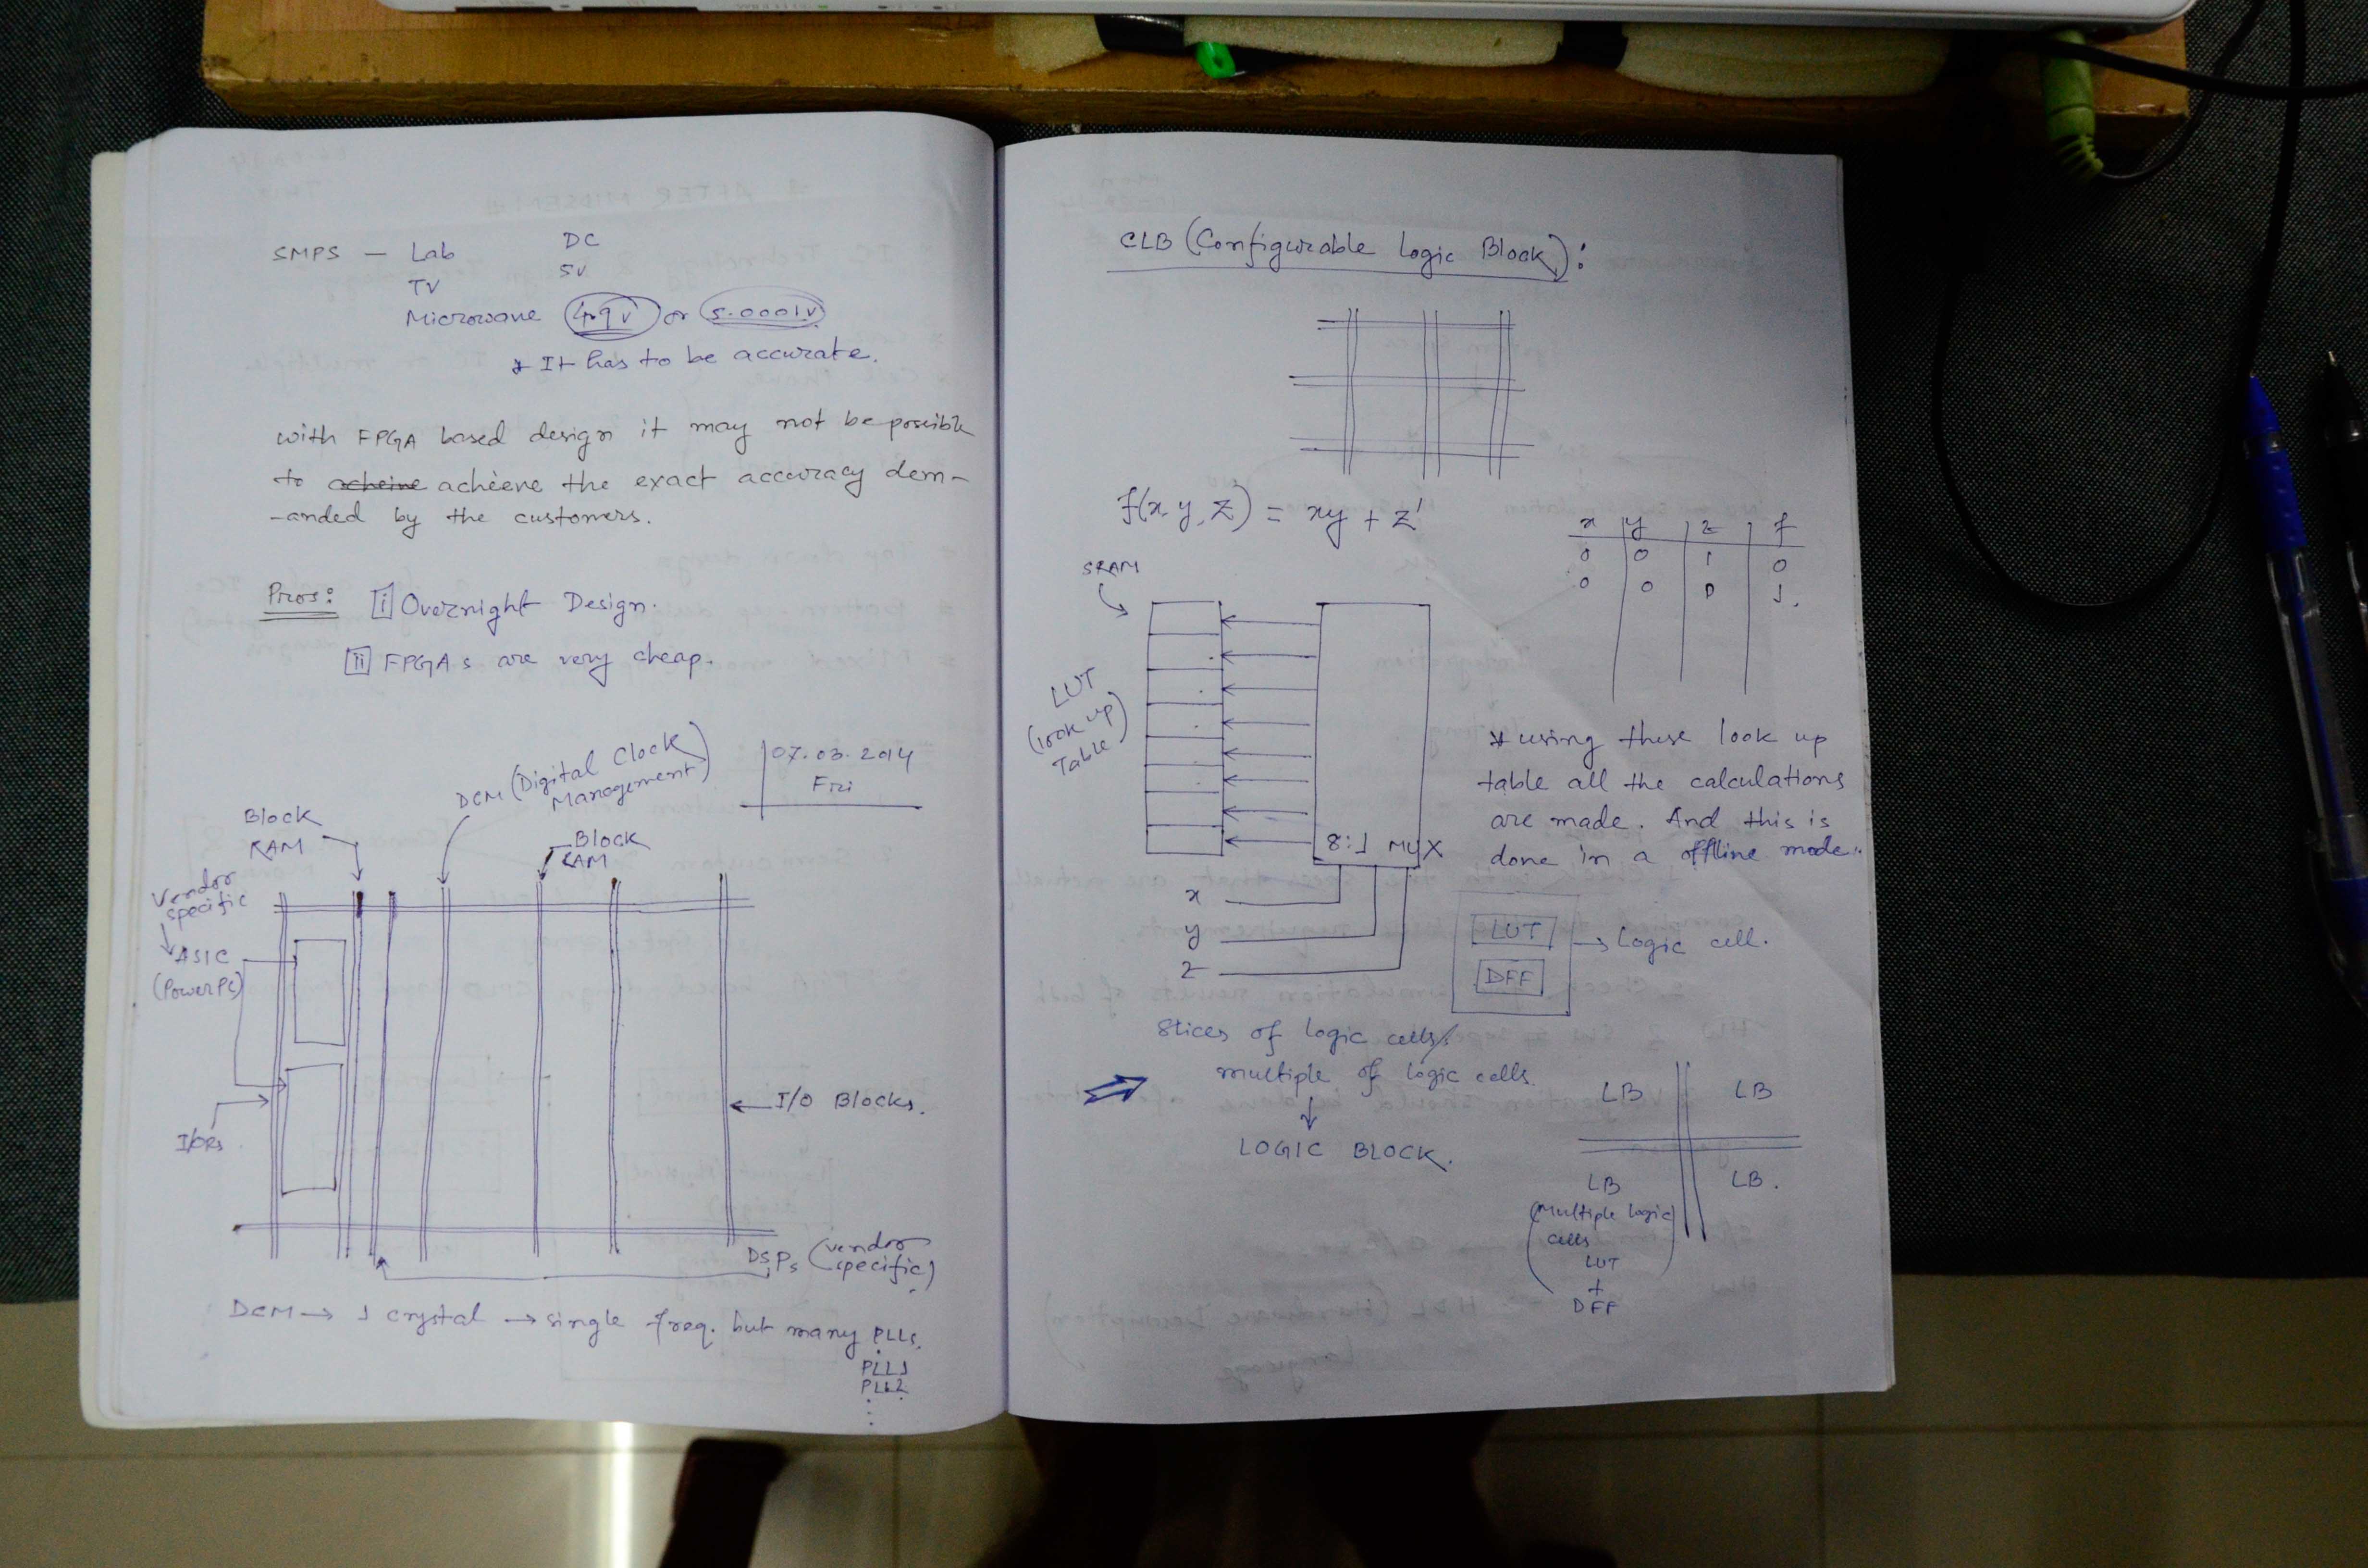 SMPS — Lab DC
TV 5V
Microwave 4.9V or 5.0001V
* It has to be accurate.
with FPGA based design it may not be possible
to acheive achieve the exact accuracy dem-
-anded by the customers.
Pros: [i] Overnight Design.
[ii] FPGAs are very cheap.
07.03.2014
Fri
DCM (Digital Clock
Management)
Block
RAM
Block
RAM
Vendor
specific
ASIC
(PowerPC)
I/O Blocks.
DSPs (vendor
specific)
DCM → 1 crystal → single freq. but many PLLs.
PLL1
PLL2
⋮
CLB (Configurable Logic Block):
f(x, y, z) = xy + z'
x y z f
0 0 1 0
0 0 0 1.
SRAM
LUT
(look up
Table)
8:1 MUX
x
y
z
* using these look up
table all the calculations
are made. And this is
done in a offline mode.
LUT
DFF
→ Logic cell.
Slices of logic cells/
multiple of logic cells.
↓
LOGIC BLOCK.
LB LB
LB LB.
(Multiple logic
cells
LUT
+
DFF)